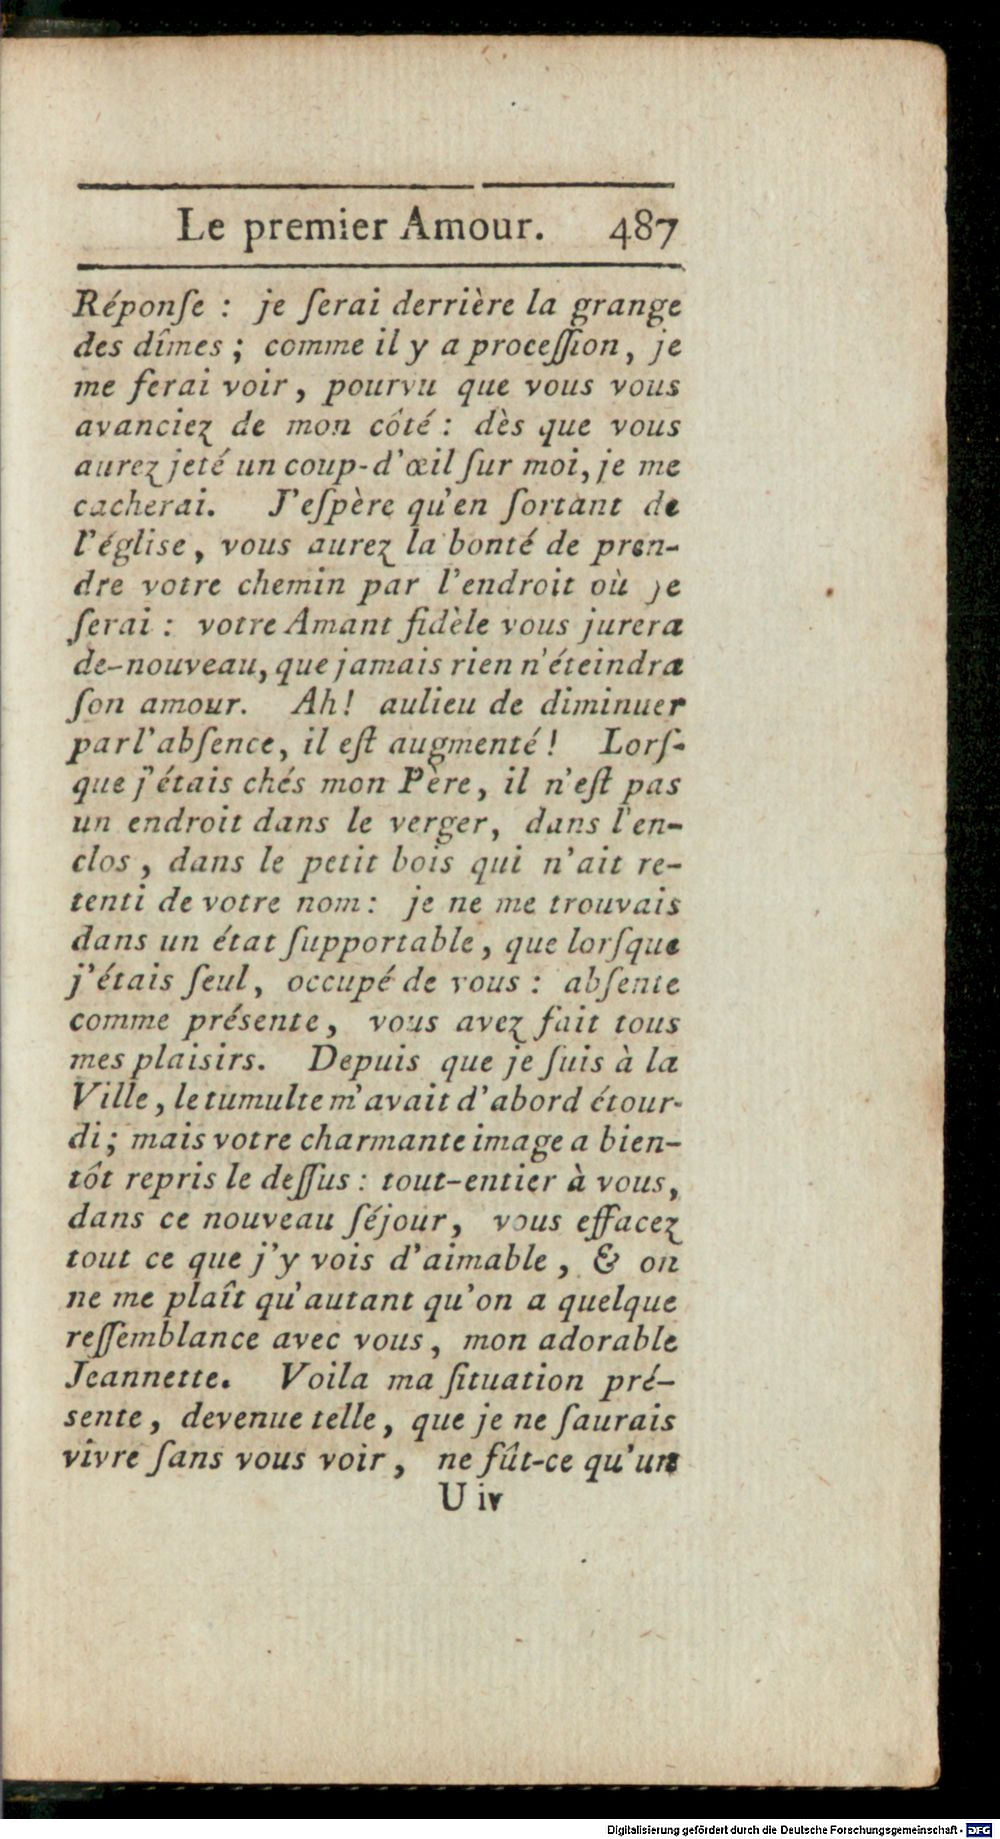 Le premier Amour. 487
Réponſe : je ſerai derrière la grange
des dîmes ; comme il y a proceſſion, je
me ferai voir, pourvu que vous vous
avanciez de mon côté : dès que vous
aurez jeté un coup-d'œil ſur moi, je me
cacherai. J'eſpère qu'en ſortant de
l'égliſe, vous aurez la bonté de pren-
dre votre chemin par l'endroit où je
ſerai : votre Amant fidèle vous jurera
de-nouveau, que jamais rien n'éteindra
ſon amour. Ah! aulieu de diminuer
par l'abſence, il eſt augmenté! Lorſ-
que j'étais chés mon Père, il n'eſt pas
un endroit dans le verger, dans l'en-
clos, dans le petit bois qui n'ait re-
tenti de votre nom : je ne me trouvais
dans un état ſupportable, que lorſque
j'étais ſeul, occupé de vous : abſente
comme présente, vous avez fait tous
mes plaisirs. Depuis que je ſuis à la
Ville, le tumulte m'avait d'abord étour-
di ; mais votre charmante image a bien-
tôt repris le deſſus : tout-entier à vous,
dans ce nouveau ſéjour, vous effacez
tout ce que j'y vois d'aimable, & on
ne me plaît qu'autant qu'on a quelque
reſſemblance avec vous, mon adorable
Jeannette. Voila ma ſituation pré-
sente, devenue telle, que je ne ſaurais
vivre ſans vous voir, ne fût-ce qu'un
U iv
Digitalisierung gefördert durch die Deutsche Forschungsgemeinschaft - DFG